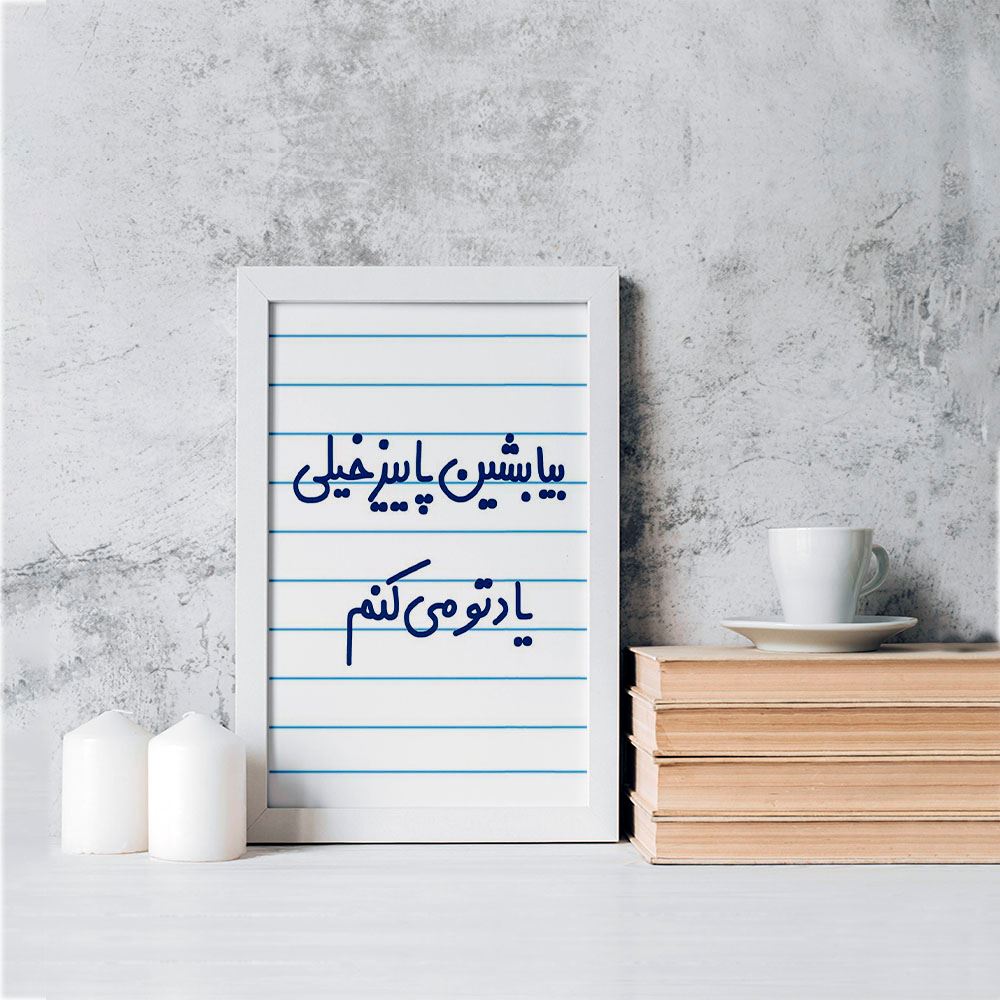 بیا بشین پاییز خیلی
یاد تو می‌کنم